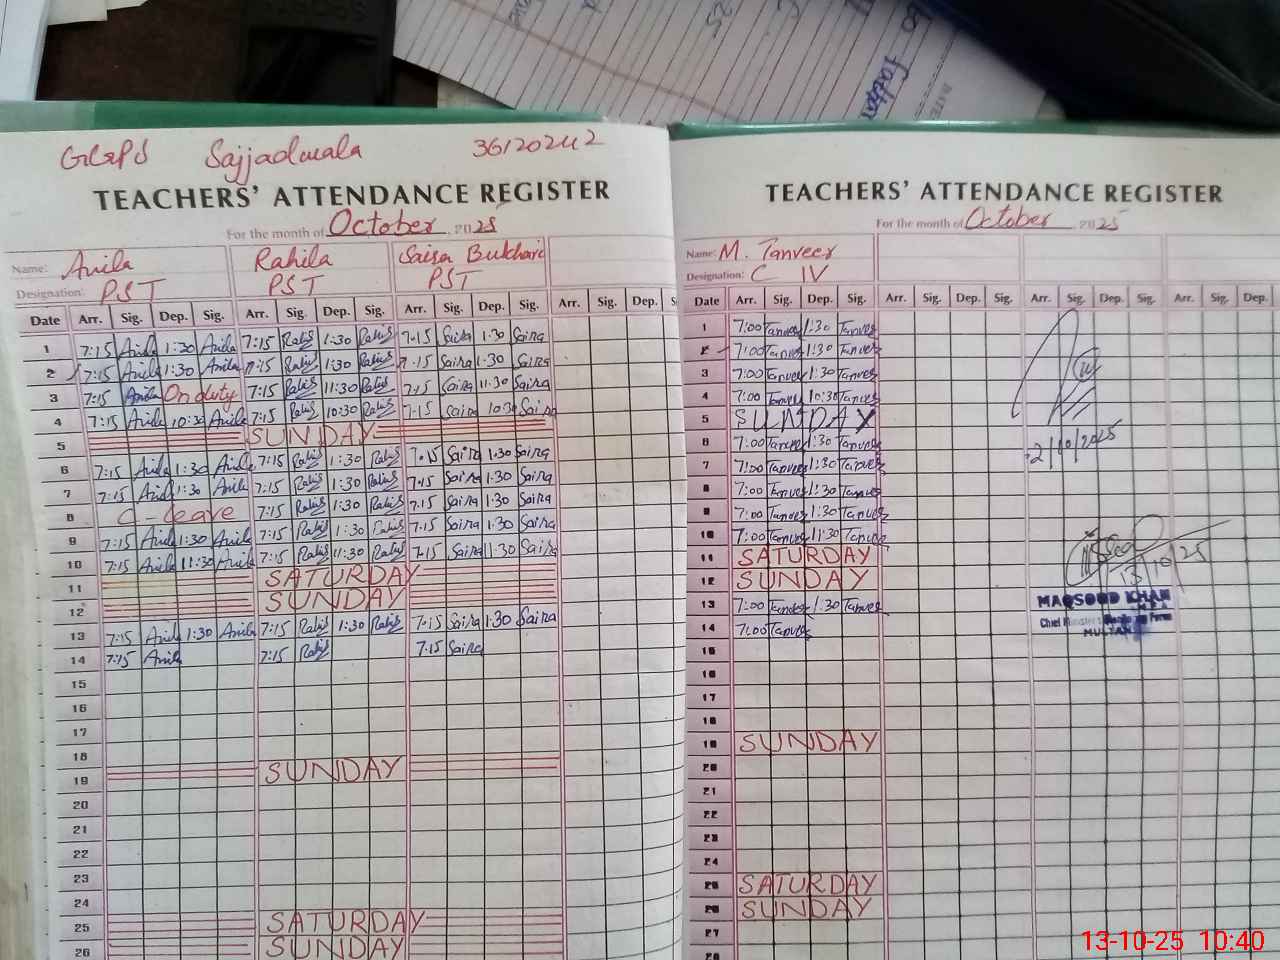 GGPS Sajjadwala 36120242
TEACHERS' ATTENDANCE REGISTER
For the month of October, 2025
Name: Anila Rahila Saira Bukhari
Designation: PST PST PST
Date Arr. Sig. Dep. Sig. Arr. Sig. Dep. Sig. Arr. Sig. Dep. Sig. Arr. Sig. Dep. S
1 7:15 Anila 1:30 Anila 7:15 Rahila 1:30 Rahila 7.15 Saira 1.30 Saira
2 7:15 Anila 1:30 Anila 7:15 Rahila 1:30 Rahila 7.15 Saira 1.30 Saira
3 7:15 Anila On duty 7:15 Rahila 11:30 Rahila 7.15 Saira 11.30 Saira
4 7:15 Anila 10:30 Anila 7:15 Rahila 10:30 Rahila 7.15 Saira 10.30 Saira
5 SUNDAY
6 7:15 Anila 1:30 Anila 7:15 Rahila 1:30 Rahila 7.15 Saira 1.30 Saira
7 7:15 Anila 1:30 Anila 7:15 Rahila 1:30 Rahila 7.15 Saira 1.30 Saira
8 C-leave 7:15 Rahila 1:30 Rahila 7.15 Saira 1.30 Saira
9 7:15 Anila 1:30 Anila 7:15 Rahila 1:30 Rahila 7.15 Saira 1.30 Saira
10 7:15 Anila 11:30 Anila 7:15 Rahila 11:30 Rahila 7.15 Saira 11.30 Saira
11 SATURDAY
12 SUNDAY
13 7:15 Anila 1:30 Anila 7:15 Rahila 1:30 Rahila 7.15 Saira 1:30 Saira
14 7:15 Anila 7:15 Rahila 7.15 Saira
15
16
17
18
19 SUNDAY
20
21
22
23
24
25 SATURDAY
26 SUNDAY
TEACHERS' ATTENDANCE REGISTER
For the month of October, 2025
Name: M. Tanveer
Designation: C IV
Date Arr. Sig. Dep. Sig. Arr. Sig. Dep. Sig. Arr. Sig. Dep. Sig. Arr. Sig. Dep.
1 7:00 Tanveer 1:30 Tanveer
2 7:00 Tanveer 1:30 Tanveer
3 7:00 Tanveer 1:30 Tanveer
4 7:00 Tanveer 10:30 Tanveer
5 SUNDAY
6 7:00 Tanveer 1:30 Tanveer
2/10/2025
7 7:00 Tanveer 1:30 Tanveer
8 7:00 Tanveer 1:30 Tanveer
9 7:00 Tanveer 1:30 Tanveer
10 7:00 Tanveer 11:30 Tanveer
11 SATURDAY
13/10/25
12 SUNDAY
13 7:00 Tanveer 1:30 Tanveer
MAQSOOD KHAN
14 7:00 Tanveer
Chief
MULTAN
15
16
17
18
19 SUNDAY
20
21
22
23
24
25 SATURDAY
26 SUNDAY
27
28
13-10-25 10:40